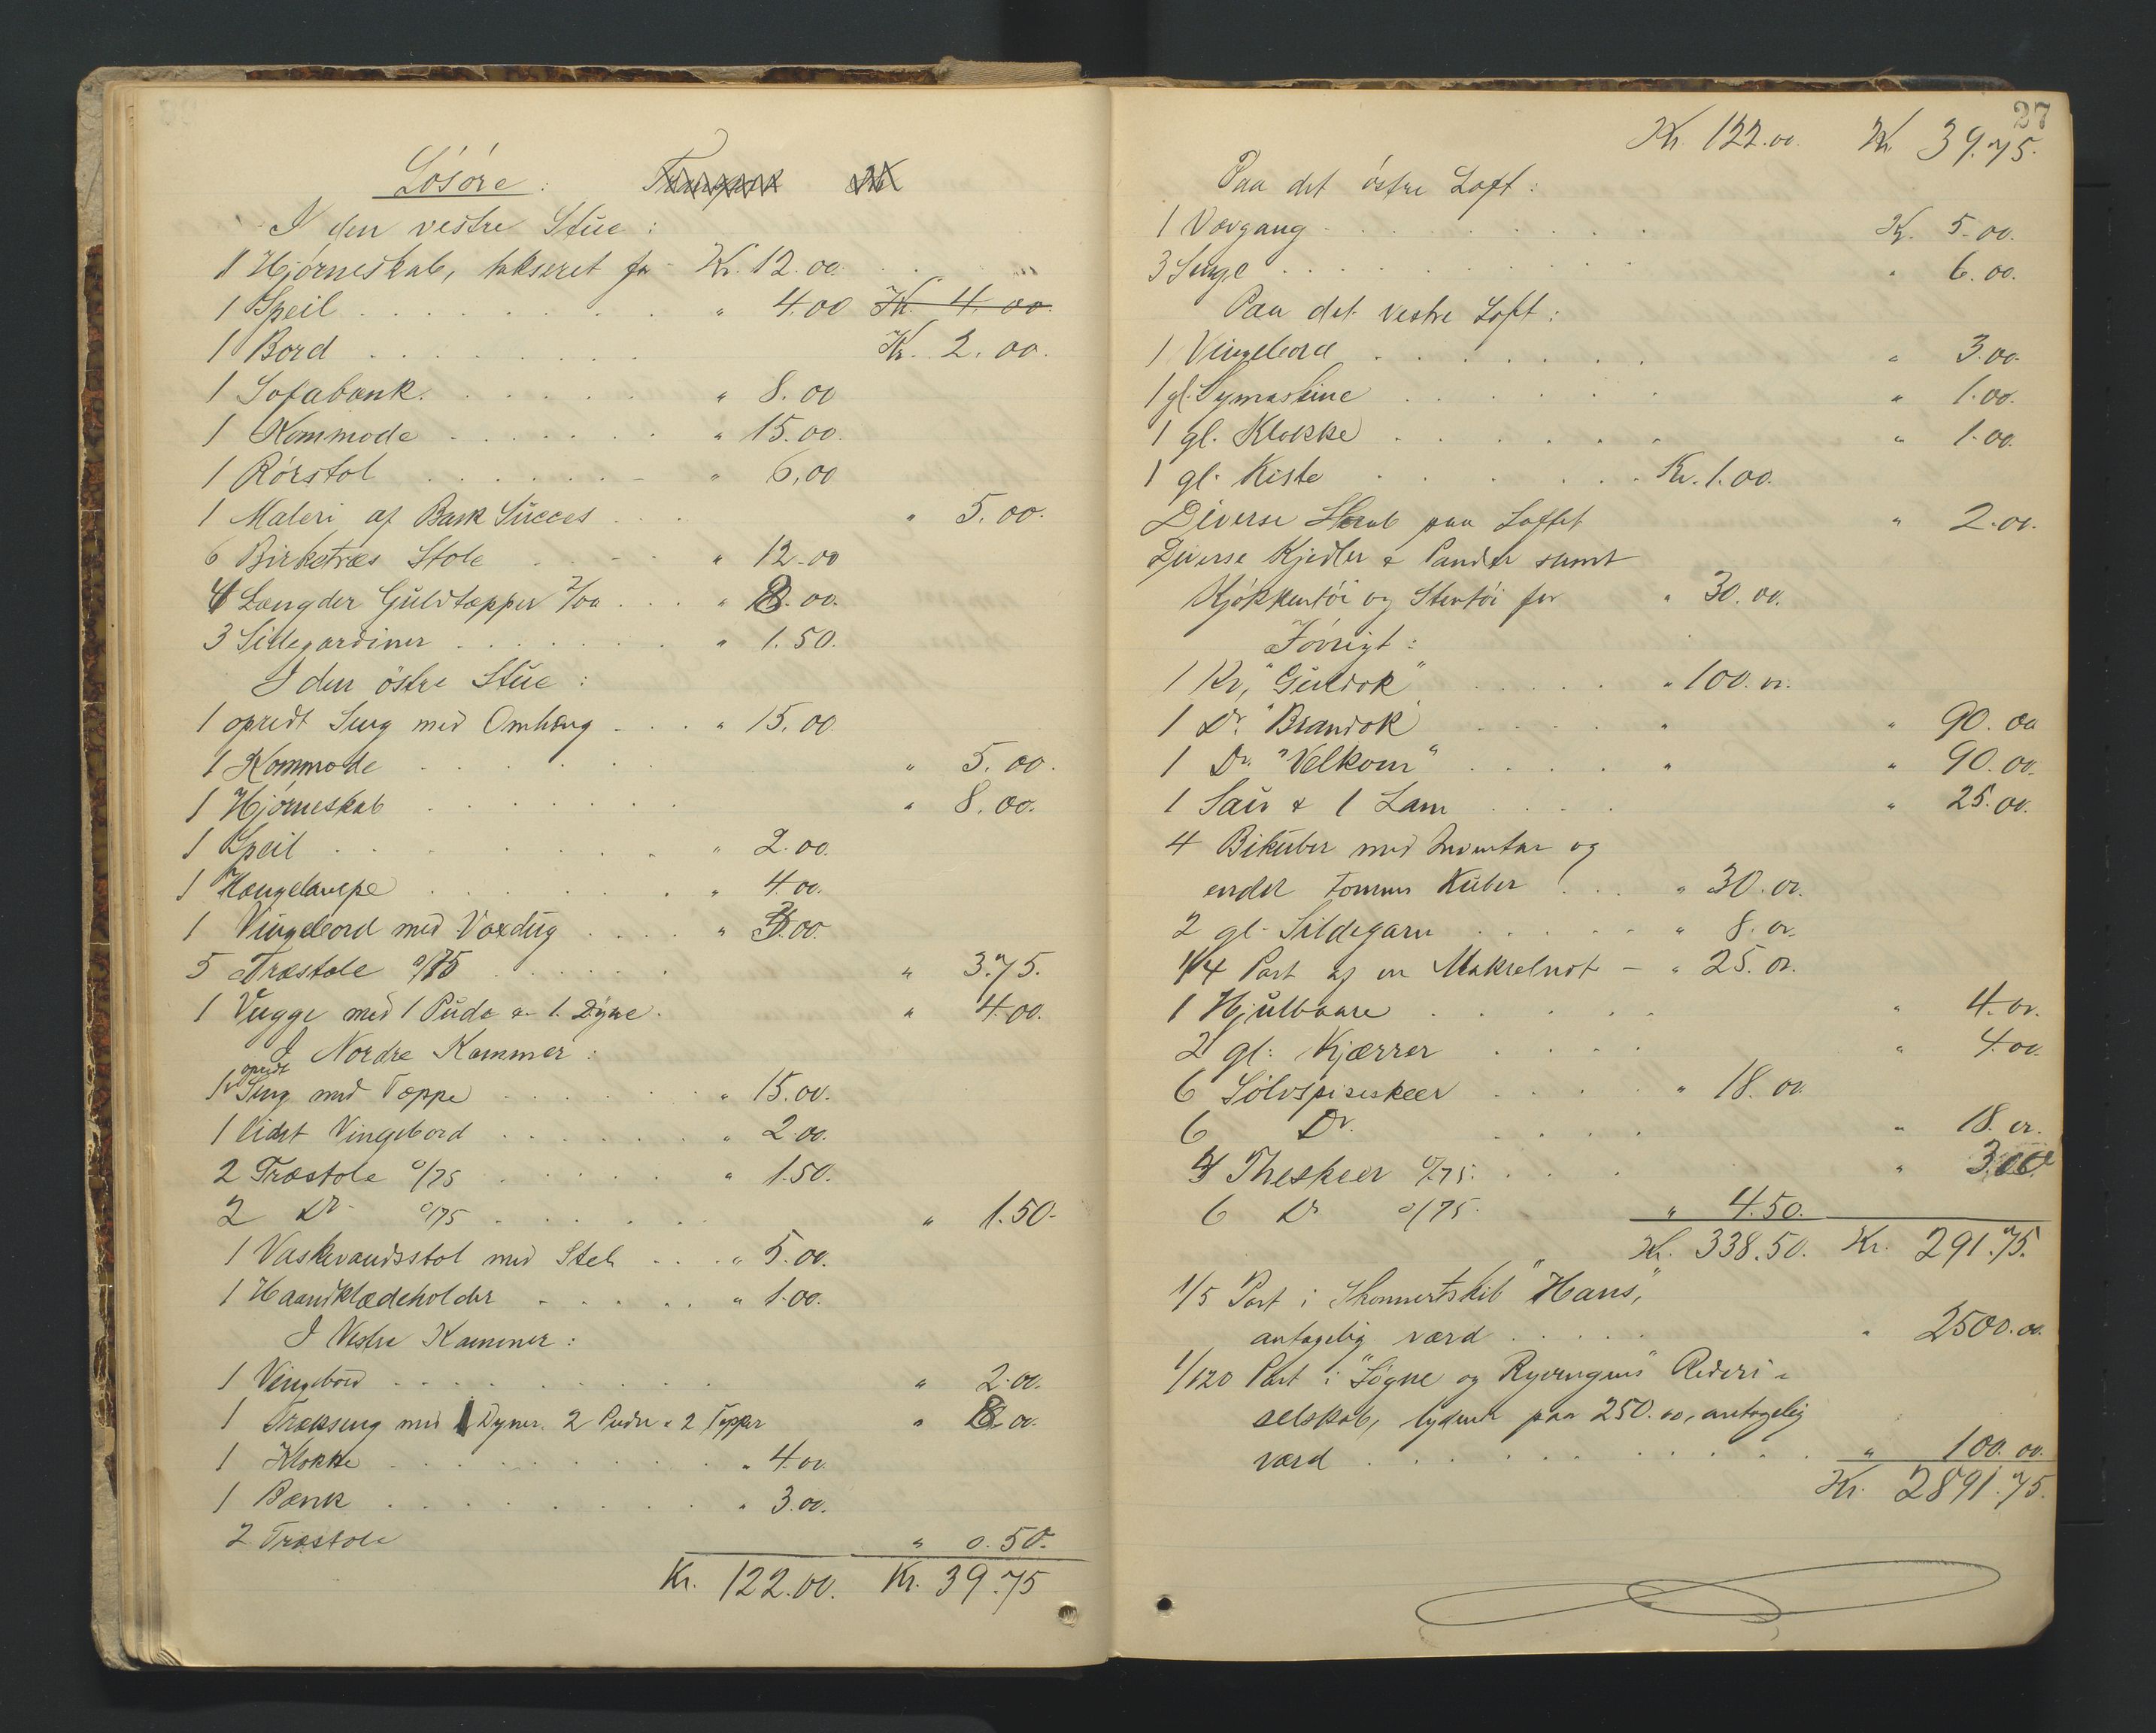 Lösöre :
I den vestre Stue :
1 Hjörneskab, takseret for Kr. 12.00.
1 Speil . . . . . . . " 4.00 Kr. 4.00.
1 Bord . . . . . . . Kr. 2.00.
1 Sofabænk . . . . . . " 8.00
1 Kommode . . . . . . " 15.00.
1 Rörstol . . . . . . " 6.00
1 Maleri af Bark Succes . . . " 5.00.
6 Birketræs Stole . . . . " 12.00
4 Længder Guldtæpper 2/00 . . . " 8.00.
3 Sidegardiner . . . . . . " 1.50.
I den östre Stue :
1 opredt Seng med Omhæng . . . " 15.00
1 Kommode . . . . . . " 5.00.
1 Hjörneskab . . . . . . . " 8.00.
1 Speil . . . . . . . . " 2.00.
1 Hængelampe . . . . . . . " 4.00.
1 Vingebord med Voxdug . . . . " 3.00.
5 Træstole a/75 . . . . . . " 3.75.
1 Vugge med 1 Pude & 1 Dyne. " 4.00.
I Nordre Kammer :
1 opredt Seng med Tæppe . . . . . . " 15.00.
1 lidet Vingebord . . . . . . " 2.00.
2 Træstole a/75 . . . . . . " 1.50.
2 Do a/75 . . . . . . " 1.50.
1 Vaskevandsstol med Stel . . . " 5.00.
1 Haandklædeholder . . . . . " 1.00.
I Vestre Kammer :
1 Vingebord . . . . . . . . " 2.00.
1 Trækseng med 1 Dyner. 2 Puder & 2 Tæpper " 8.00.
1 Klokke . . . . . . . . " 4.00.
1 Bænk . . . . . . . . " 3.00.
2 Træstole " 0.50.
Kr. 122.00. Kr. 39.75
27
Kr. 122.00. Kr. 39.75.
Paa det östre Loft :
1 Vævgang . . . . . . . . Kr. 5.00.
3 Senge . . . . . . . . " 6.00.
Paa det vestre Loft :
1 Vingebord . . . . . . . " 3.00.
1 gl. Symaskine . . . . . . " 1.00.
1 gl. Klokke . . . . . . " 1.00.
1 gl. Kiste . . . . . . Kr. 1.00.
Diverse Skrab paa Loftet " 2.00.
Diverse Kjedler & Pander samt
Kjökkentöi og Stentöi for " 30.00.
Iövrigt :
1 Ko, "Guldok" . . . . . " 100.00.
1 Do "Brandok" . . . . . " 90.00
1 Do "Velkom" . . . . . " 90.00.
1 Sau & 1 Lam . . . . " 25.00.
4 Bikuber med Inventar og
endel tomme Kuber . . . " 30.00.
2 gl. Sildegarn . . . . . " 8.00.
1/4 Part af en Makrelnot - " 25.00.
1 Hjulbaare . . . . . . " 4.00.
2 gl. Kjærrer . . . . " 4.00.
6 Sölvspiseskeer . . . . " 18.00.
6 Do . . . . " 18.00.
4 Theskeer a/75. . . . " 3.00.
6 Do a/75. " 4.50.
Kr. 338.50. Kr. 291.75.
1/5 Part i Skonnertskib "Hans",
antagelig værd . . . . . " 2500.00.
1/120 Part i "Sögne og Ryvingens" Rederi-
selskab, lydende paa 250.00, antagelig
værd . . . . . . . . . " 100.00.
Kr. 2891.75.